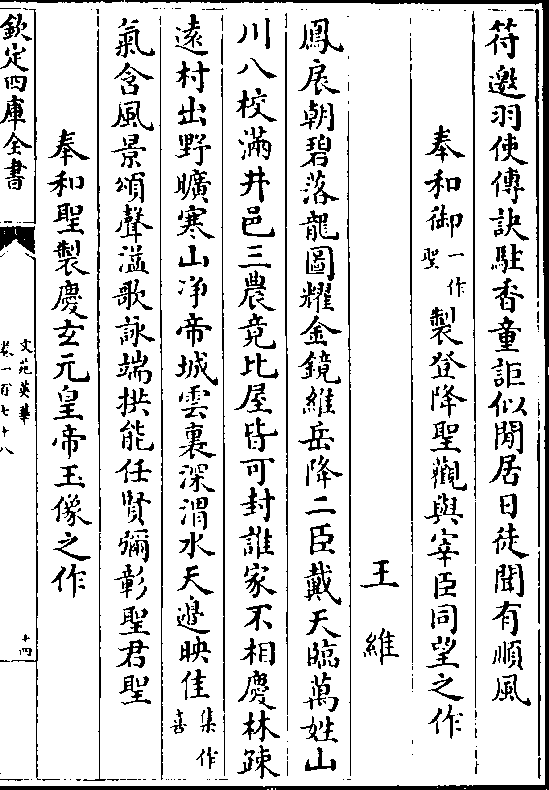 符邀羽使傳訣駐香童詎似閒居日徒聞有順風
奉和御一作聖製登降聖觀與宰臣同望之作
王維
鳳扆朝碧落龍圖耀金鏡維岳降二臣戴天臨萬姓山
川八校滿井邑三農竟比屋皆可封誰家不相慶林疎
遠村出野曠寒山净帝城雲裏深渭水天邉映佳集作喜
氣含風景頌聲溢歌詠端拱能任賢彌彰聖君聖
奉和聖製慶玄元皇帝玉像之作
欽定四庫全書
文苑英華
卷一百七十八
十四